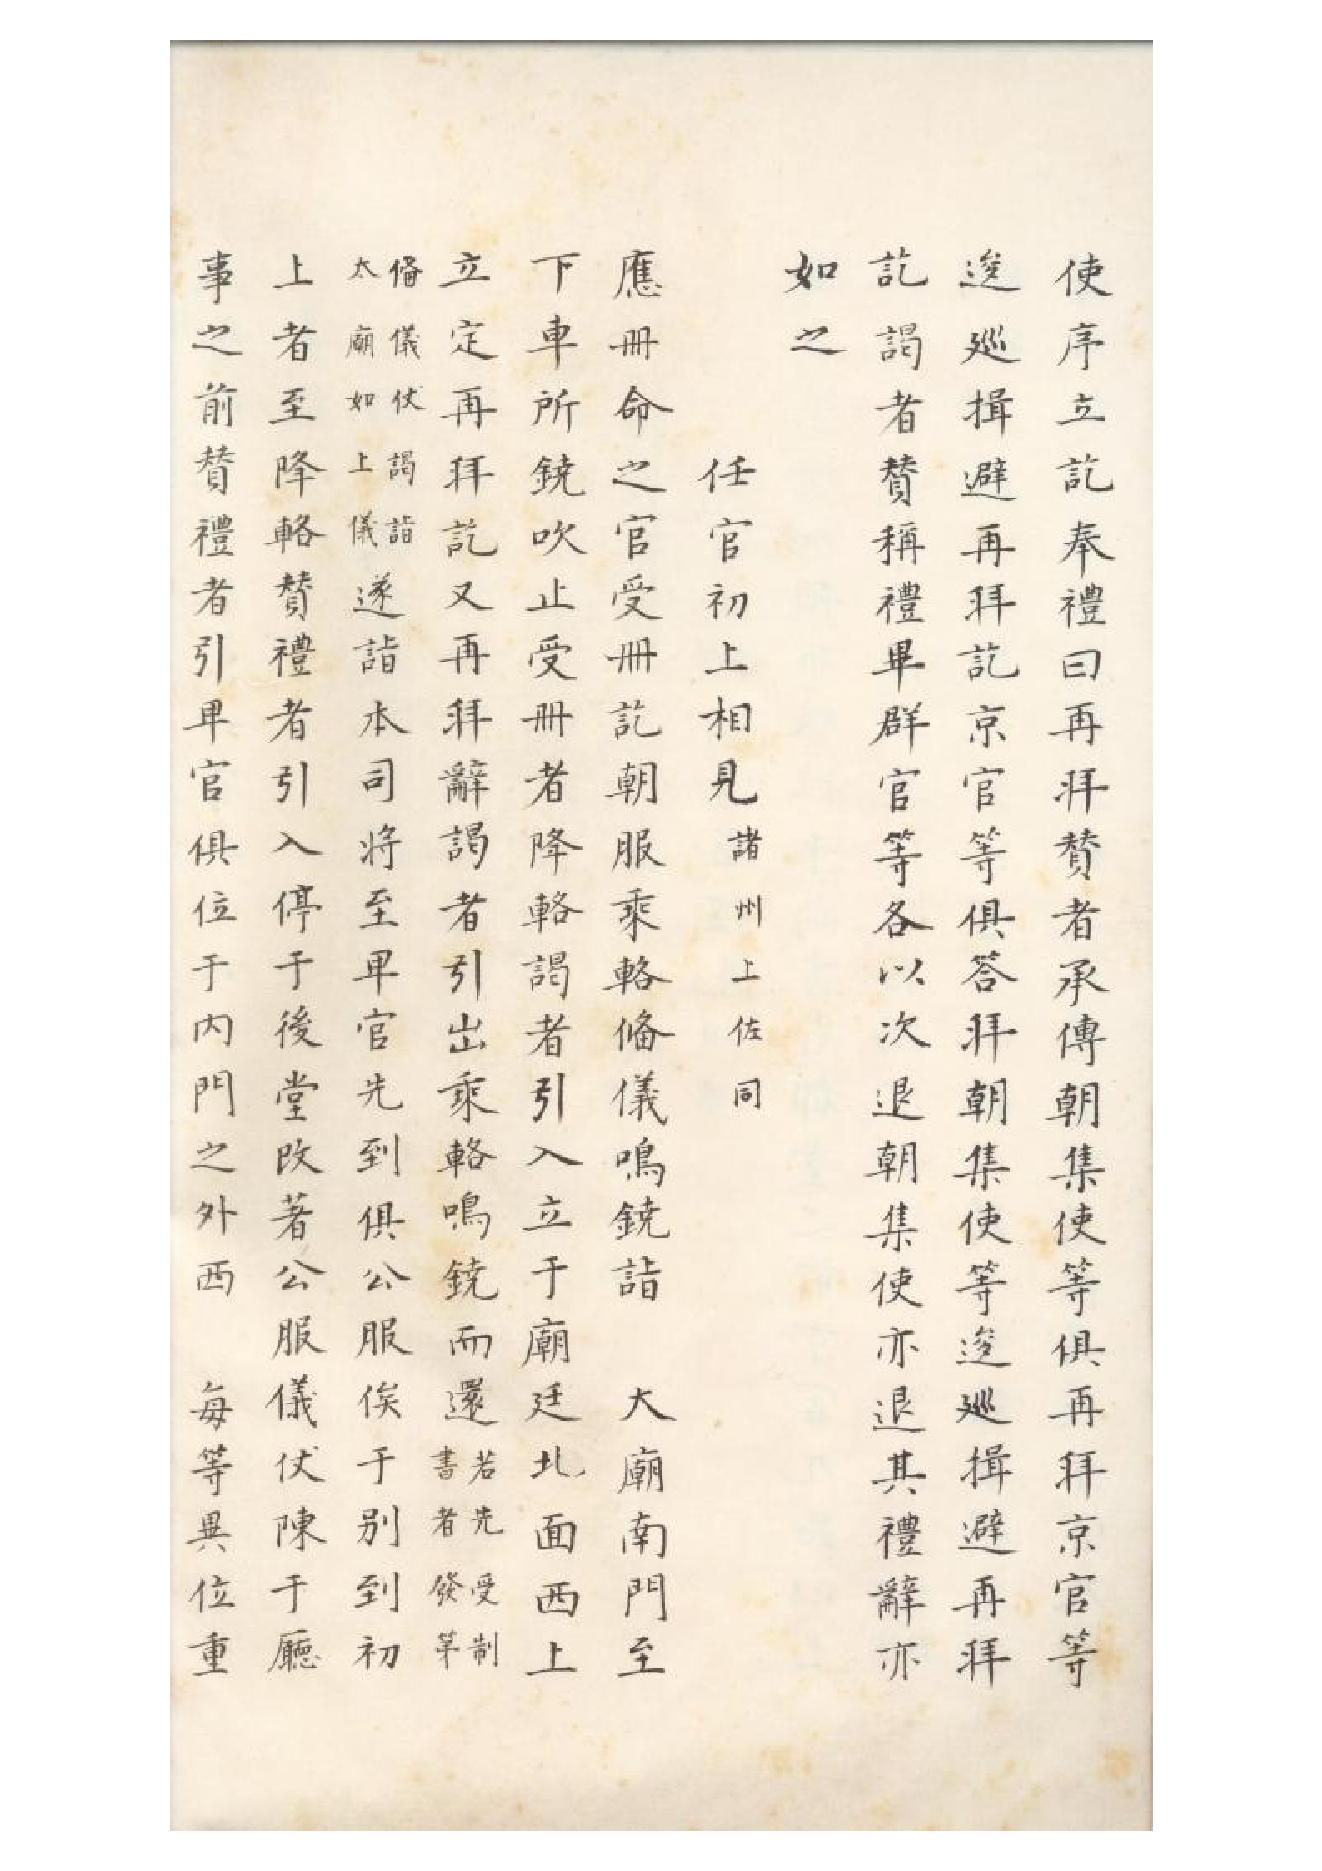 使序立訖奉禮曰再拜贊者承傳朝集使等俱再拜京官等
逡巡揖避再拜訖京官等俱答拜朝集使等逡巡揖避再拜
訖謁者贊稱禮畢群官等各以次退朝集使亦退其禮辭亦
如之
任官初上相見諸州上佐同
應冊命之官受冊訖朝服乘輅俻儀鳴鐃詣　大廟南門至
下車所鐃吹止受冊者降輅謁者引入立于廟廷北面西上
立定再拜訖又再拜辭謁者引出乘輅鳴鐃而還若先受制書者發第
俻儀仗謁詣太廟如上儀遂詣本司將至卑官先到俱公服俟于別到初
上者至降輅贊禮者引入停于後堂改著公服儀仗陳于廳
事之前贊禮者引卑官俱位于內門之外西　每等異位重